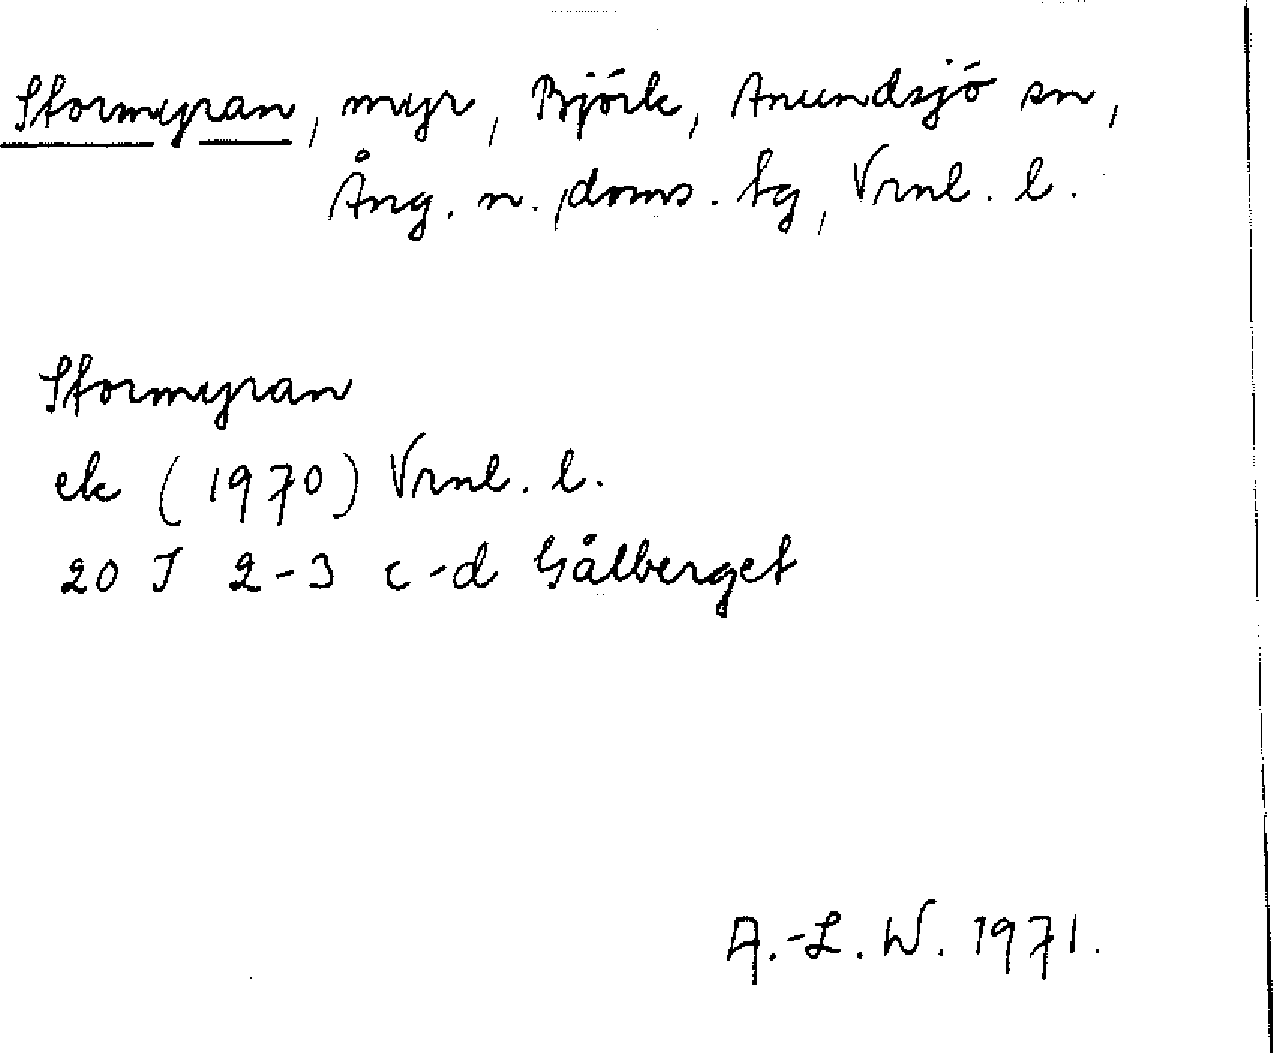 Stormyran, myr, Björk, Anundsjö sn,
Ång. n. doms. tg, Vrnl. l.
Stormyran
ek (1970) Vrnl. l.
20 I 2-3 c-d Gålberget
A.-L. W. 1971.